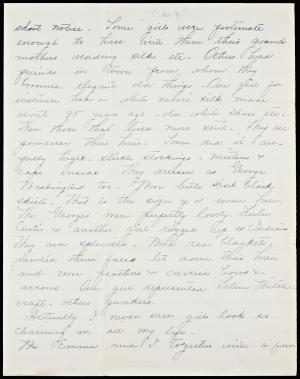 short notice. Some girls were fortunate
enough to have with them their grand
mothers wedding silk etc. Others had
friends in town from whom they
borrowed elegant old things. One girl for
instance had a white moire silk made
about 85 years ago - old white shoes etc.
Then those that lived near sent. They all
powdered their hair. Some did it Pom-
padour high. Black stockings. Mittens &
Caps. They dressed as George
Washington too. Wore little short black
skirts. That is the sign of a man here.
The Georges were perfectly lovely.
Curtis & another girl rigged up as Indians
They were splendid. Wore red blankets
painted their faces let down their hair
and wore feathers & carried bows &
arrows. One girl represented Salem Witch
craft. others quakers.
Actually I never saw girls look so
charming in all my life.
Emma and I together with a few